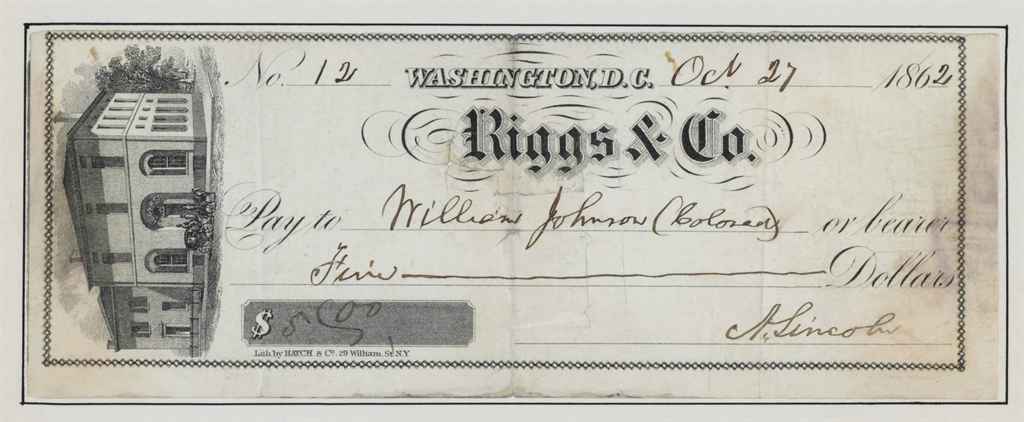 No. 12 WASHINGTON, D.C. Oct. 27 1862
Riggs & Co.
Pay to William Johnson (Colored) or bearer
Five Dollars
$ 5 00
A. Lincoln
Lith by HATCH & Co. 29 William St. N.Y